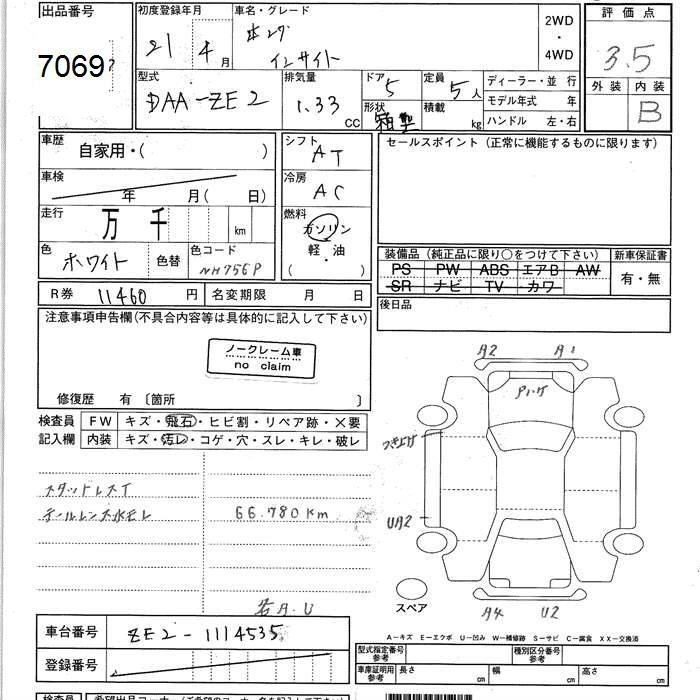 出品番号
7069
初度登録年月
21 年 4 月
車名・グレード
ホンダ
インサイト
2WD
・
4WD
評価点
3.5
外装 内装
B
型式
DAA-ZE2
排気量
1.33
cc
ドア
5
定員
5人
形状
箱型
積載
kg
ディーラー・並 行
モデル年式 年
ハンドル 左・右
車歴
自家用・( )
車検
年 月( 日)
走行
万 千 km
色
ホワイト
色替
色コード
NH756P
シフト
AT
冷房
AC
燃料
ガソリン
軽・油
( )
セールスポイント (正常に機能するものに限ります)
装備品 (純正品に限り○をつけて下さい)
PS PW ABS エアB AW
SR ナビ TV カワ
新車保証書
有・無
後日品
R券 11460 円
名変期限 月 日
注意事項申告欄(不具合内容等は具体的に記入して下さい)
ノークレーム車
no claim
修復歴 有 〔箇所 〕
検査員
記入欄
FW キズ・飛石・ヒビ割・リペア跡・×要
内装 キズ・汚レ・コゲ・穴・スレ・キレ・破レ
スタットレスT
テールレンズ水モレ
66.780km
若A.U
A2 A1
Pハゲ
つき上げ
UA2
スペア
A4 U2
A-キズ E-エクボ U-凹み W-補修跡 S-サビ C-腐食 XX-交換済
車台番号 ZE2-1114535
登録番号
型式指定番号
参考
種別区分番号
参考
車庫証明用
参考
長さ cm
幅 cm
高さ cm
検査員